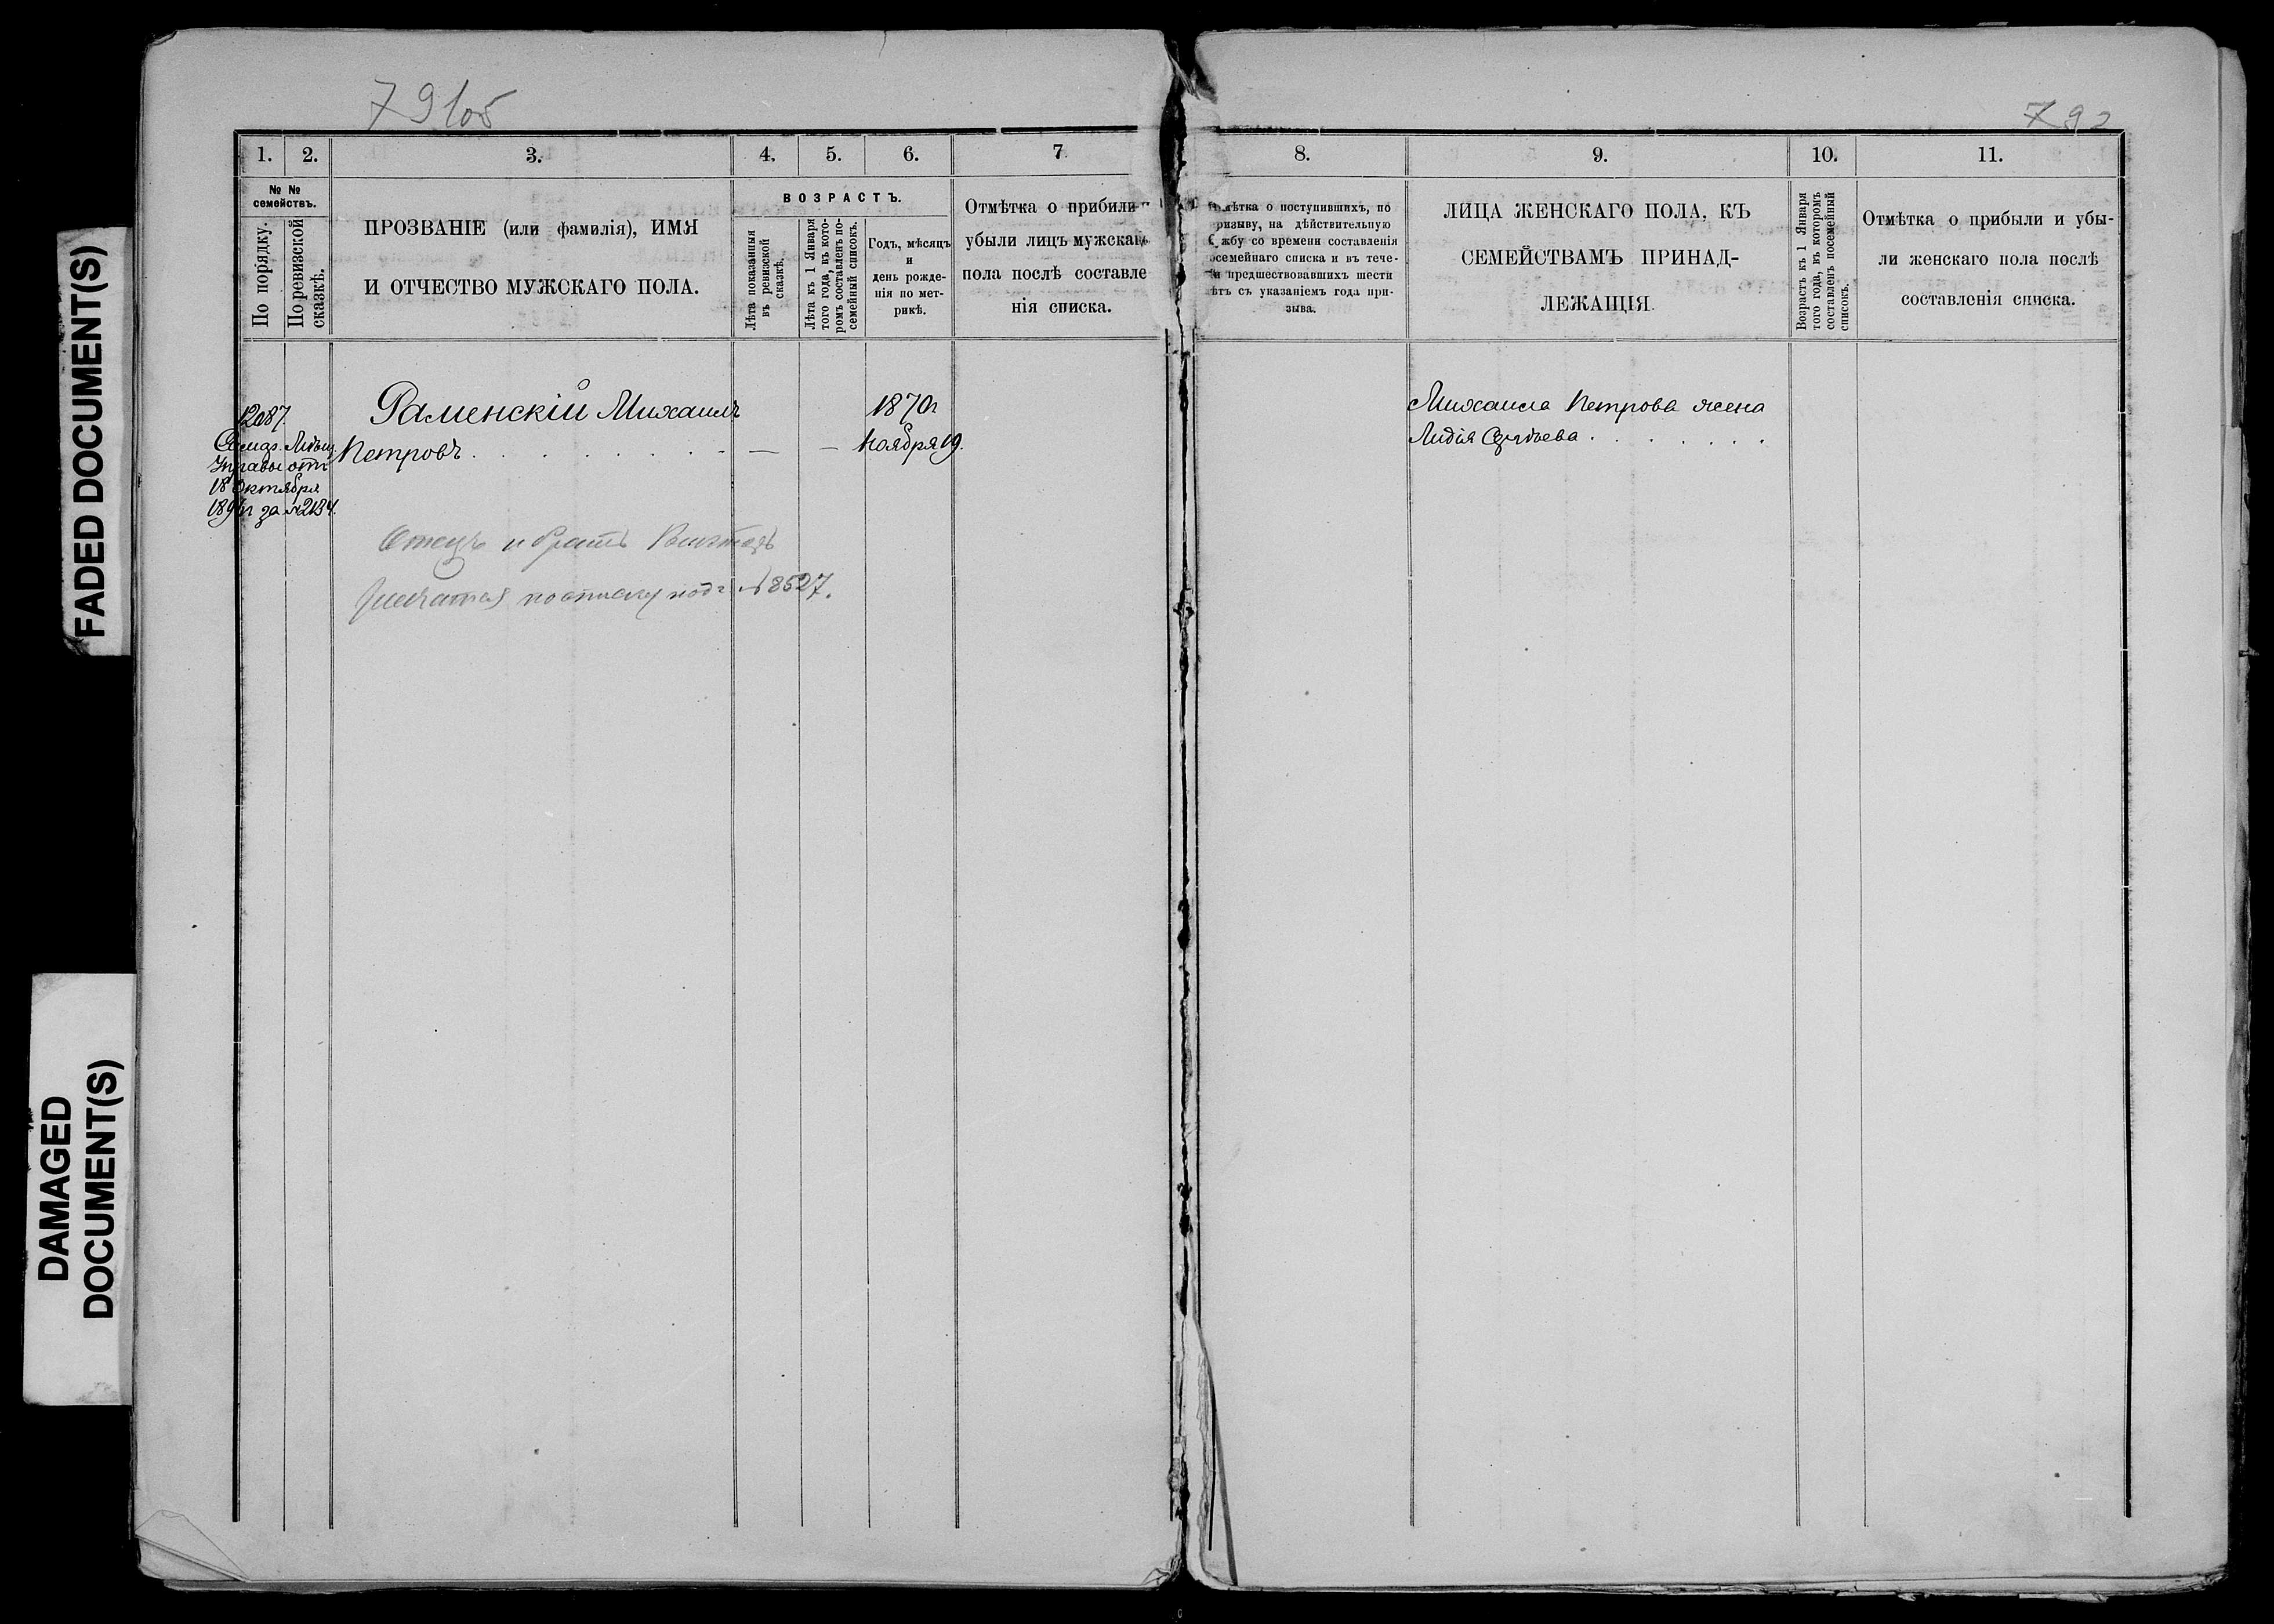 FADED DOCUMENT(S)
DAMAGED
DOCUMENT(S)
791об
792
1.
2.
3.
4.
5.
6.
7
№ №
семействъ.
По порядку.
По ревизской
сказкѣ.
ПРОЗВАНІЕ (или фамилія), ИМЯ
И ОТЧЕСТВО МУЖСКАГО ПОЛА.
ВОЗРАСТЪ.
Лѣта показанныя
въ ревизской
сказкѣ.
Лѣта къ 1 Января
того года, въ кото-
ромъ составленъ по-
семейный списокъ.
Годъ, мѣсяцъ
и
день рожде-
нія по мет-
рикѣ.
Отмѣтка о прибыли
убыли лицъ мужскаго
пола послѣ составле
нія списка.
12087.
Управы отъ
18 Октября
за №2134.
Раменскій Михаилъ
Петровъ . . . . . . . — —
1870г
Ноября 19.
Отецъ и братъ
по списку подъ №8527.
8.
9.
10.
11.
мѣтка о поступившихъ, по
ризыву, на дѣйствительную
жбу со времени составленія
осемейнаго списка и въ тече-
предшествовавшихъ шести
ѣтъ съ указаніемъ года при-
зыва.
ЛИЦА ЖЕНСКАГО ПОЛА, КЪ
СЕМЕЙСТВАМЪ ПРИНАД-
ЛЕЖАЩІЯ.
Возрастъ къ 1 Января
того года, въ которомъ
составленъ посемейный
списокъ.
Отмѣтка о прибыли и убы-
ли женскаго пола послѣ
составленія списка.
Михаила Петрова жена
Лидія . . . . . . .